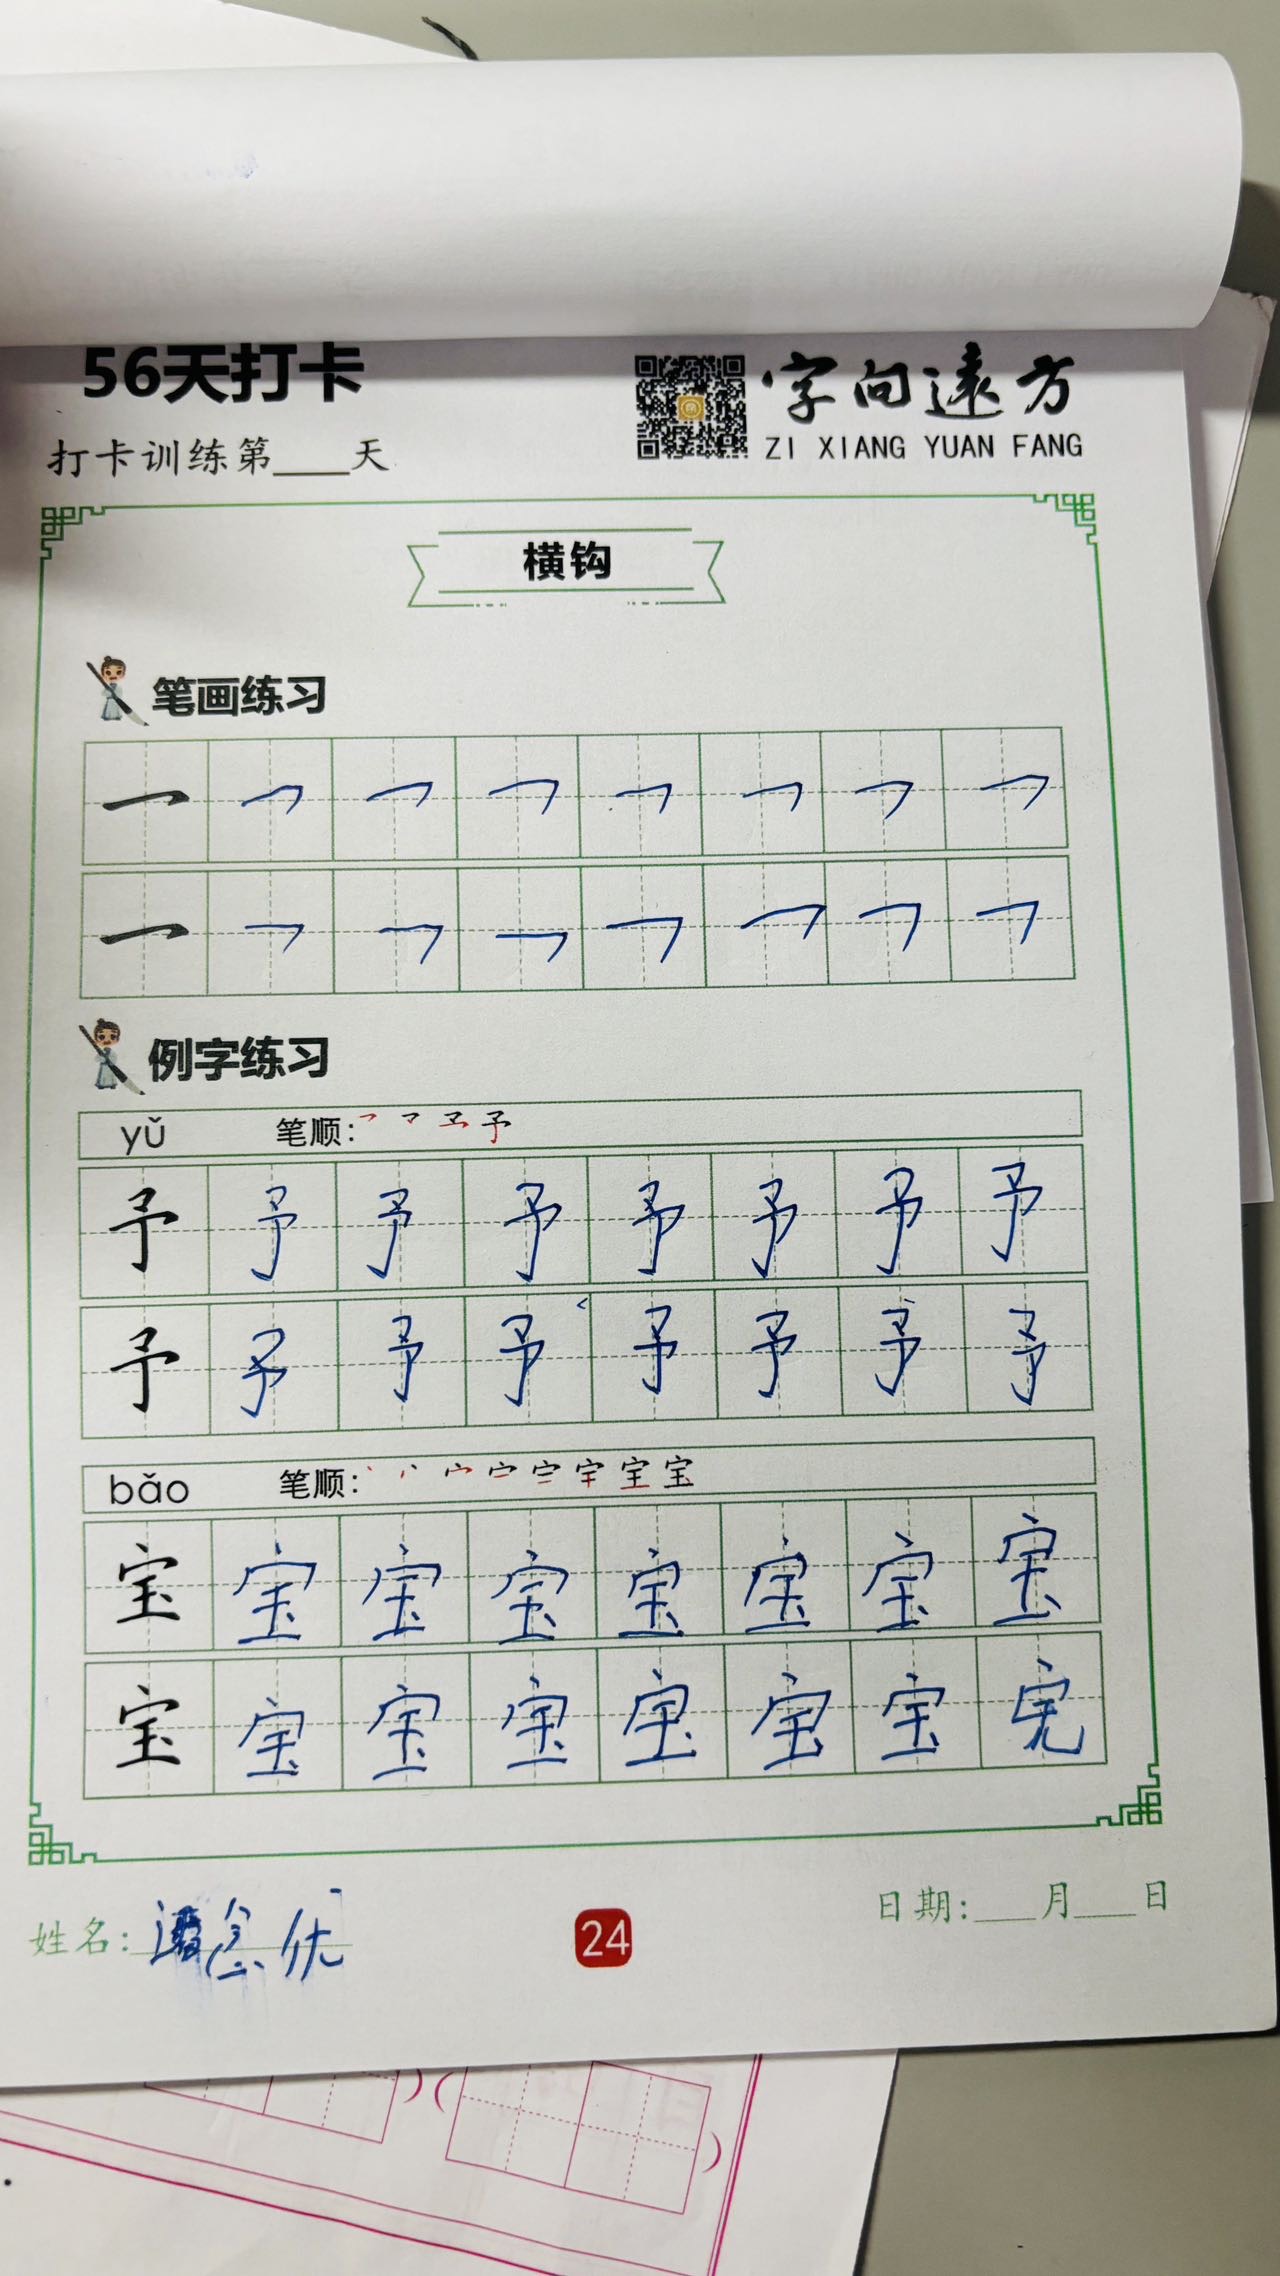 56天打卡
字向遠方
打卡训练第____天
ZI XIANG YUAN FANG
横钩
笔画练习
例字练习
yǔ 笔顺:
予 予 予 予 予 予 予 予
予 予 予 予 予 予 予 予
bǎo 笔顺:
宝 宝 宝 宝 宝 宝 宝 宝
宝 宝 宝 宝 宝 宝 宝 完
姓名:
24
日期:___月___日